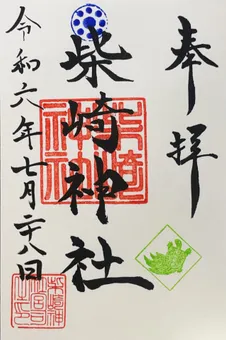 奉拝
柴崎神社
柴崎
神社
令和六年七月二十八日